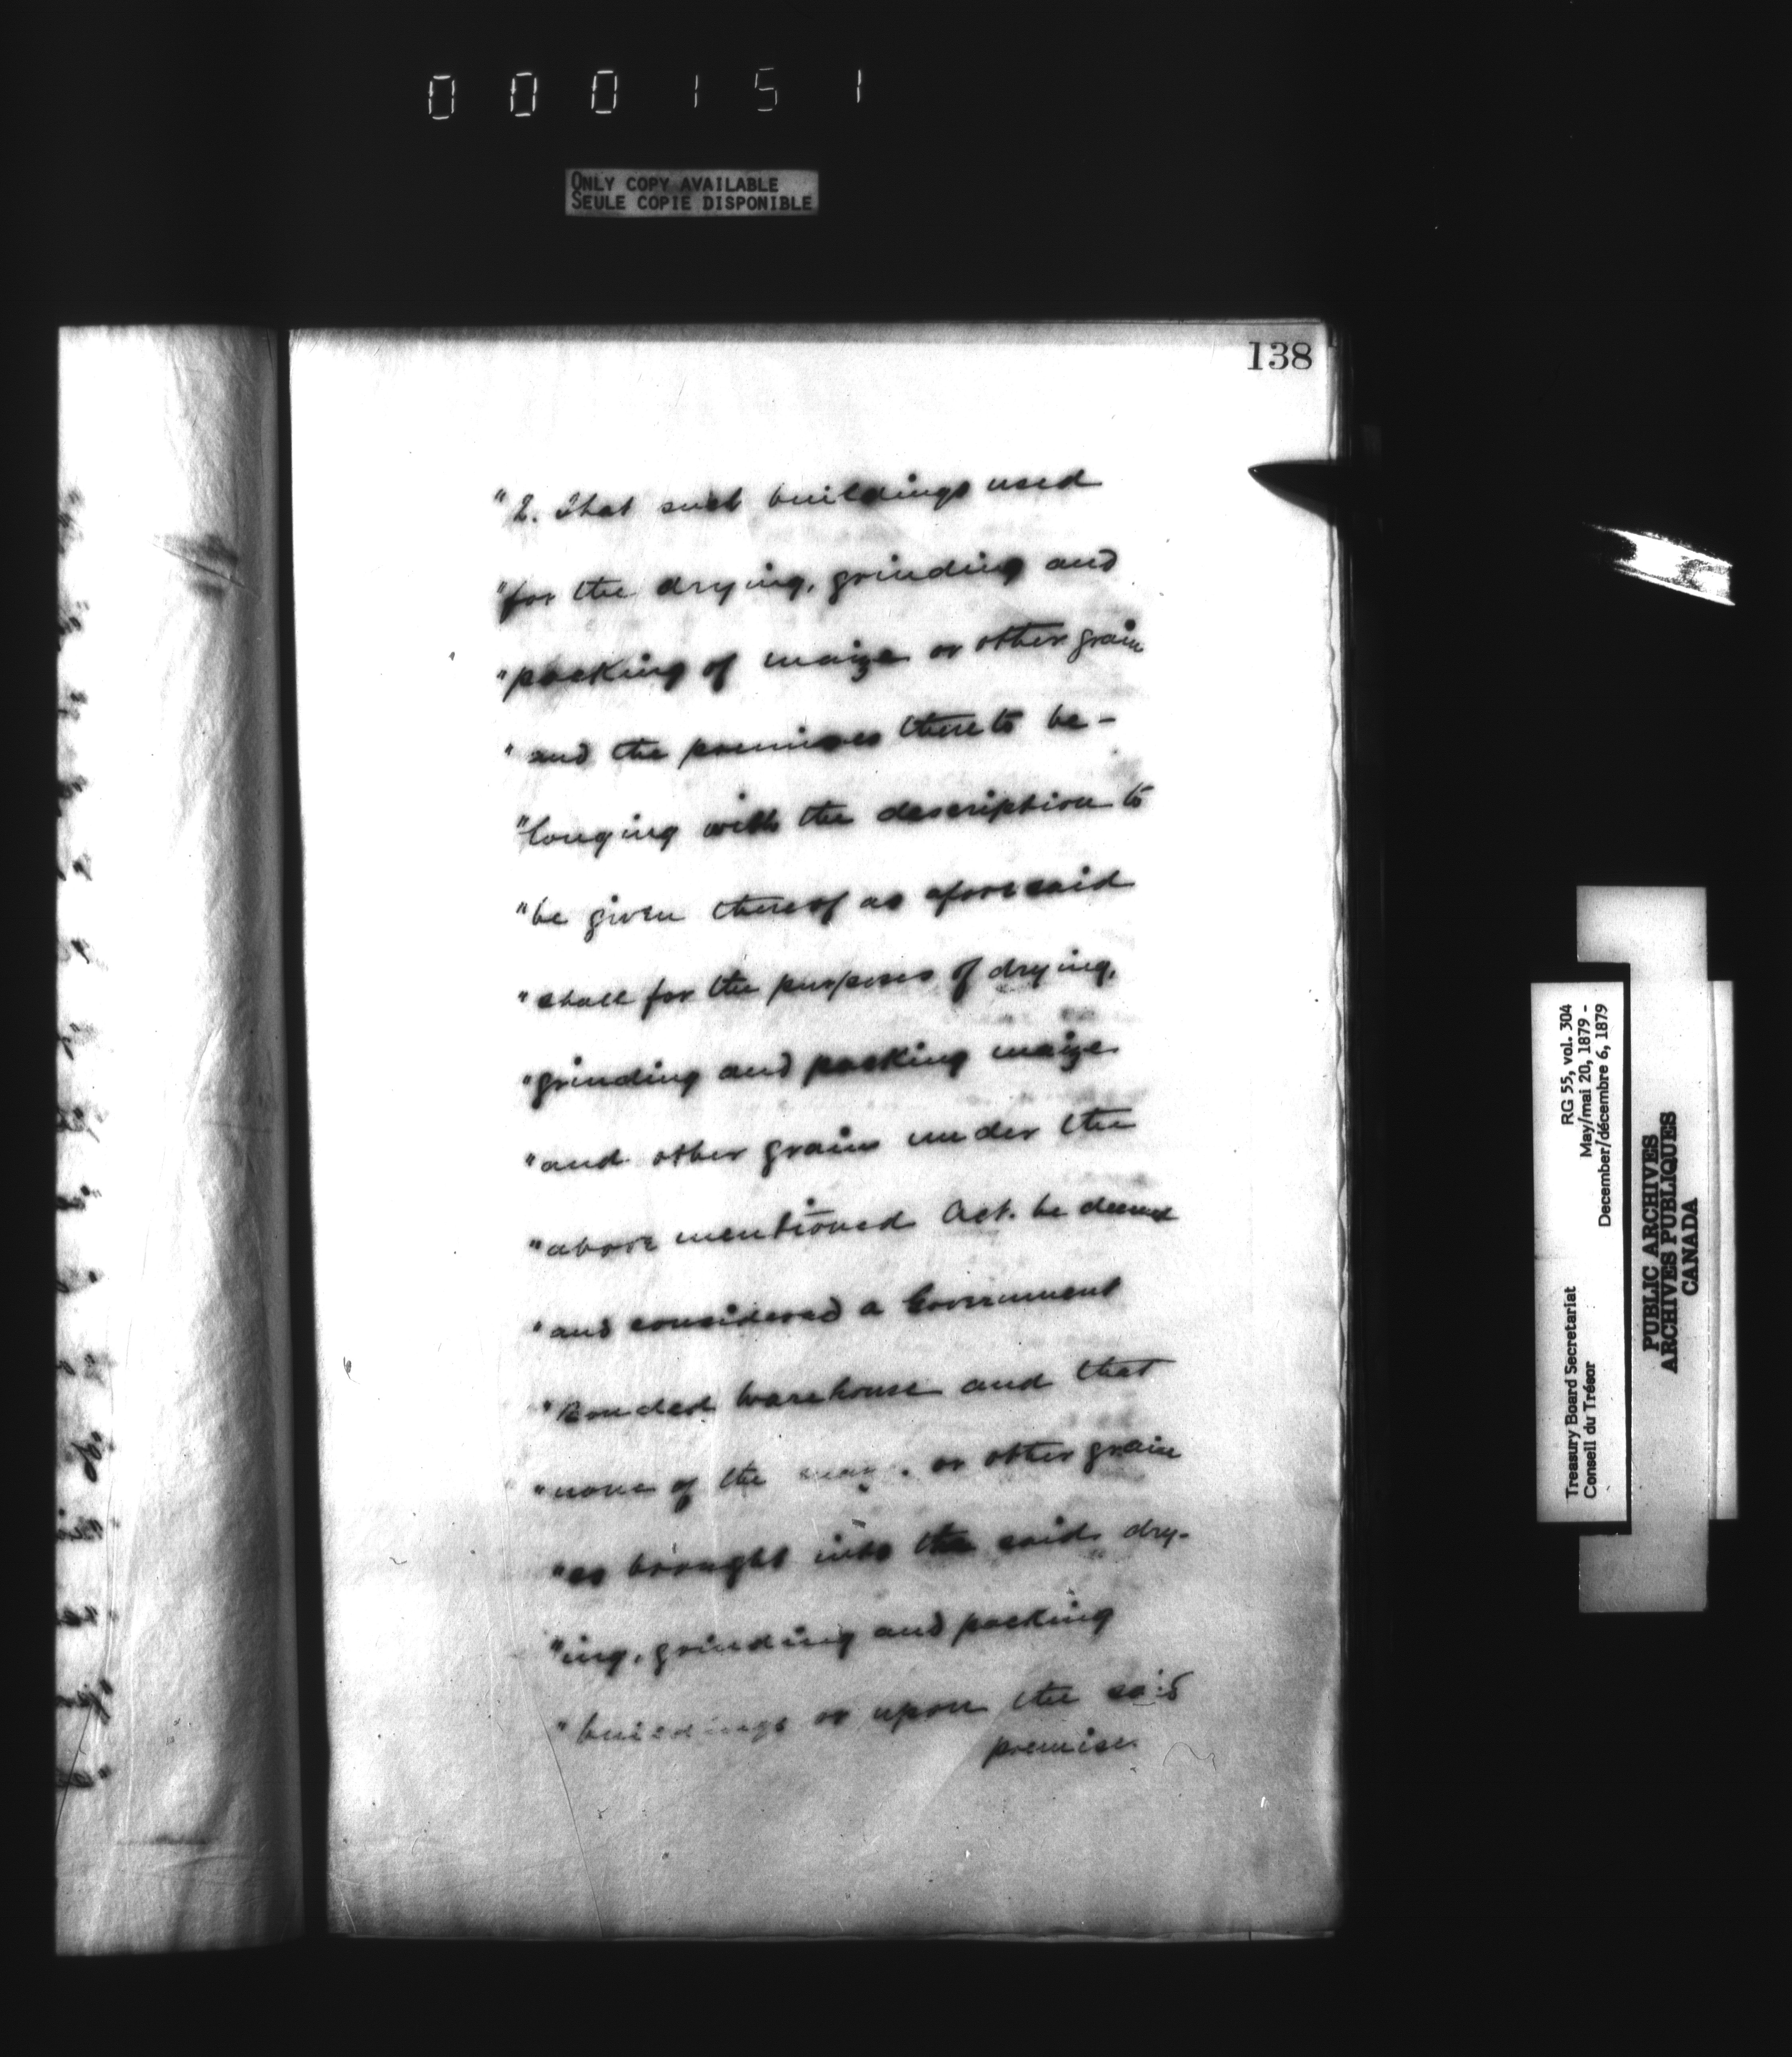 000151
ONLY COPY AVAILABLE
SEULE COPIE DISPONIBLE
138
"2. That such buildings used
"for the drying, grinding and
"packing of maize or other grain
"and the premises thereto be-
"longing with the description to
"be given thereof as aforesaid
"shall for the purposes of drying,
"grinding and packing maize
"and other grain under the
"above mentioned Act. be deemed
"and considered a Government
"Bonded Warehouse and that
"none of the maize or other grain
"so brought into the said dry-
"ing, grinding and packing
"buildings or upon the said
premises
Treasury Board Secretariat RG 55, vol. 304
Conseil du Trésor May/mai 20, 1879 -
December/décembre 6, 1879
PUBLIC ARCHIVES
ARCHIVES PUBLIQUES
CANADA